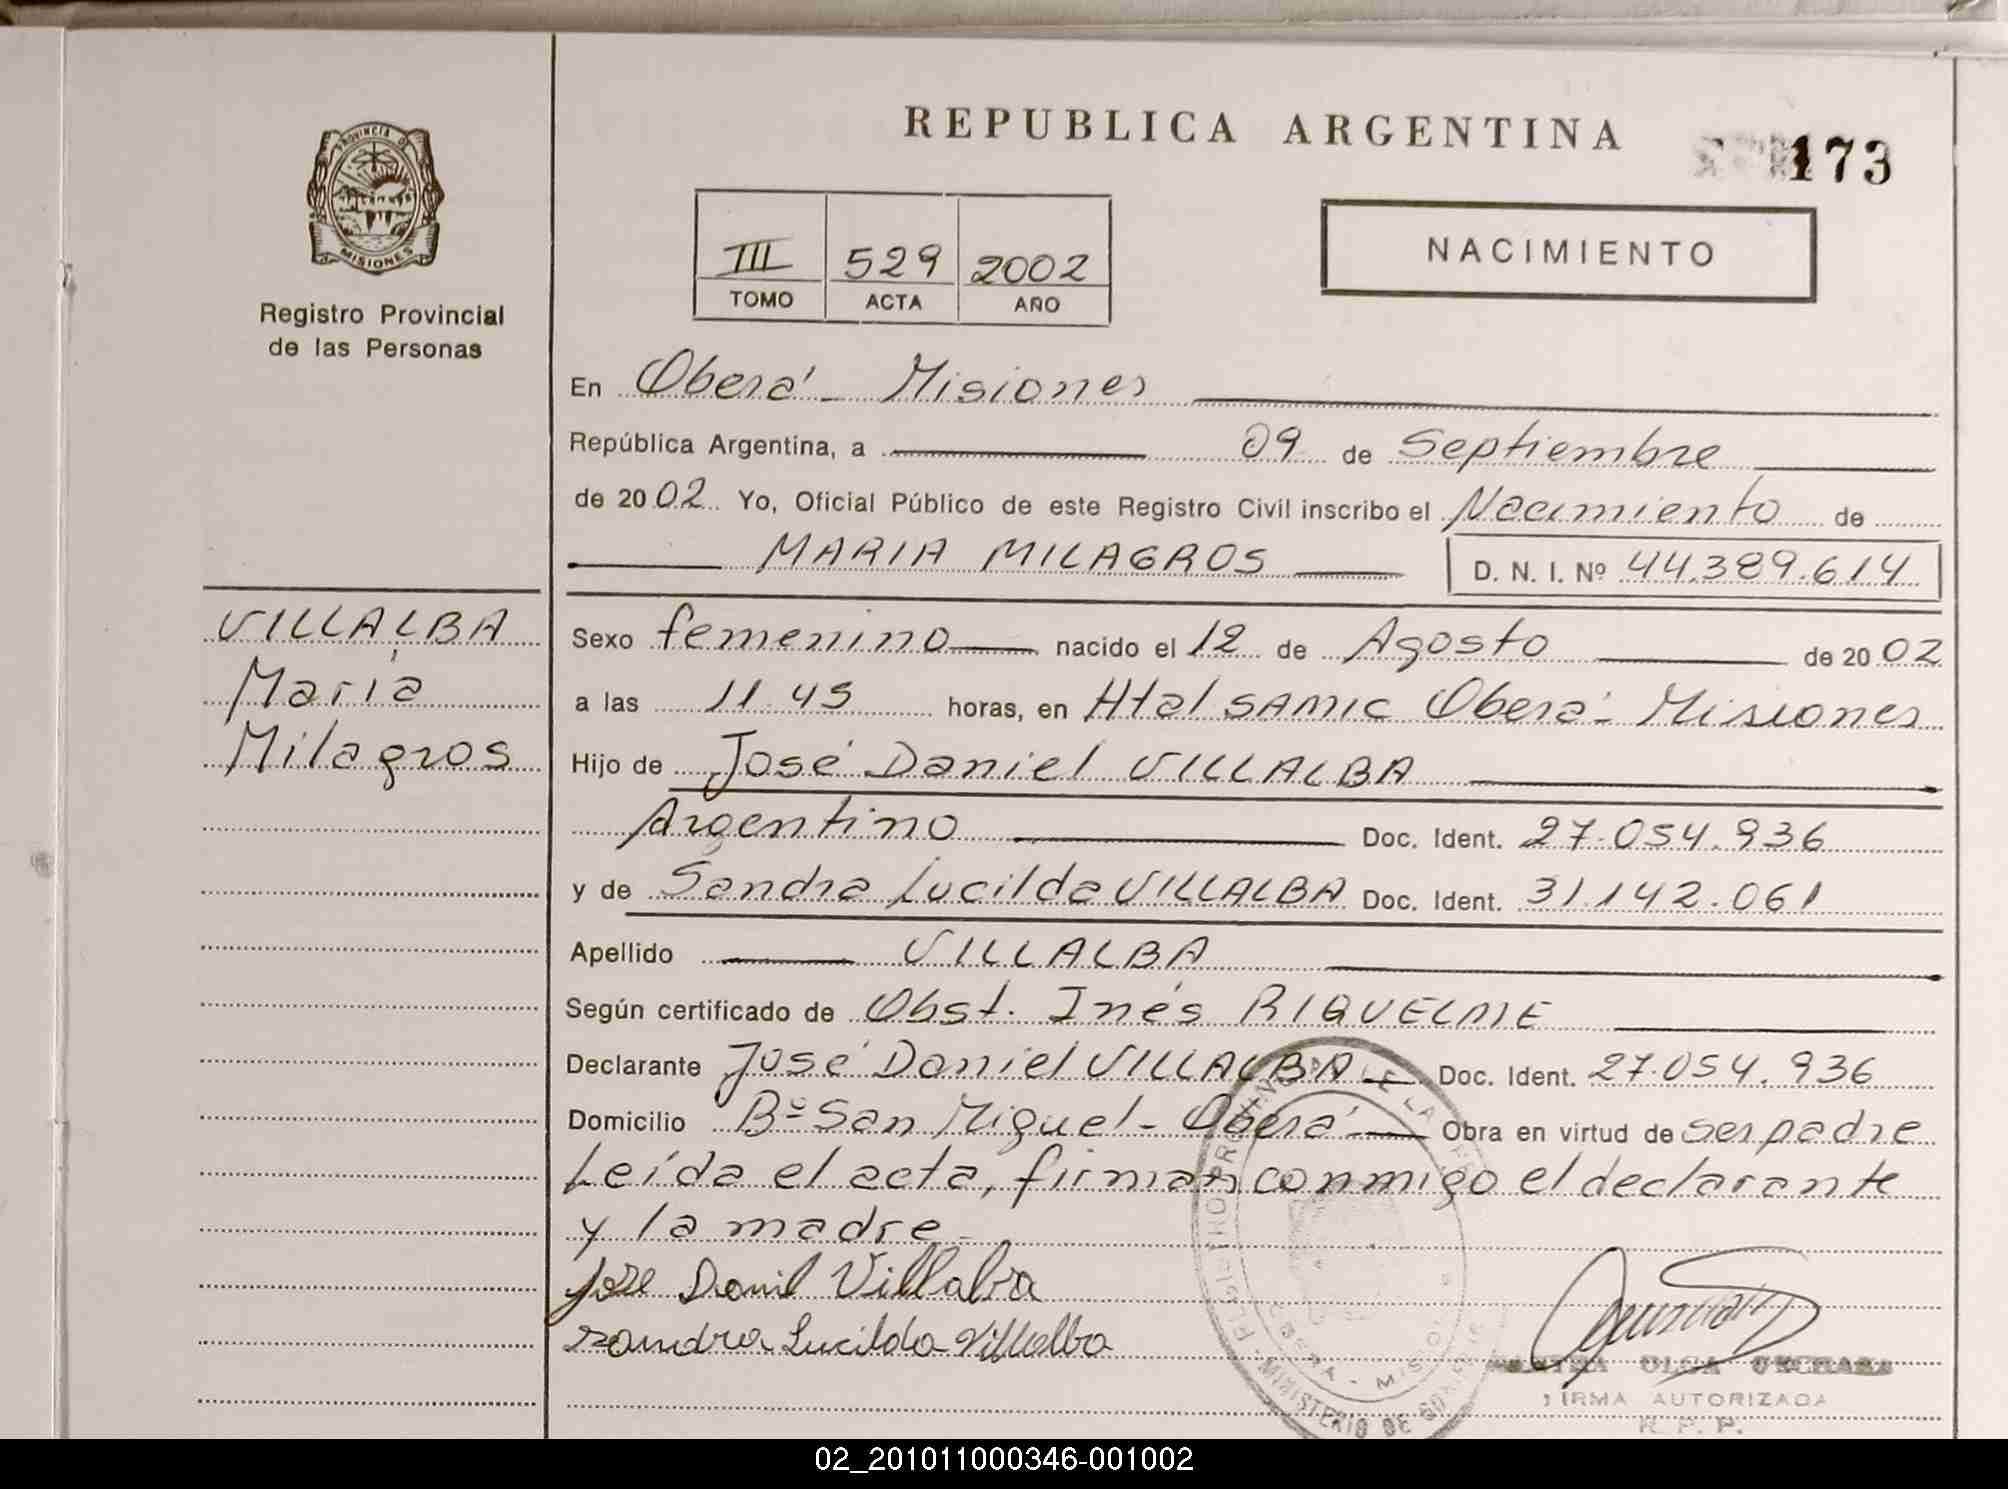 REPUBLICA ARGENTINA
173
PROVINCIA DE
MISIONES
Registro Provincial
de las Personas
III 529 2002
TOMO ACTA AÑO
NACIMIENTO
En Oberá - Misiones
República Argentina, a 09 de Septiembre
de 2002 Yo, Oficial Público de este Registro Civil inscribo el Nacimiento de
MARIA MILAGROS D. N. I. Nº 44.389.614
VILLALBA
María
Milagros
Sexo femenino nacido el 12 de Agosto de 2002
a las 11.45 horas, en Htal SAMIC Oberá - Misiones
Hijo de José Daniel VILLALBA
Argentino Doc. Ident. 27.054.936
y de Sandra Lucilda VILLALBA Doc. Ident. 31.142.061
Apellido VILLALBA
Según certificado de Obst. Inés RIQUELME
Declarante José Daniel VILLALBA Doc. Ident. 27.054.936
Domicilio Bº San Miguel - Oberá Obra en virtud de ser padre
Leída el acta, firman conmigo el declarante
y la madre -
Jose Daniel Villalba
Sandra Lucilda Villalba
OLGA
FIRMA AUTORIZADA
R. P. P.
MINISTERIO DE
02_201011000346-001002